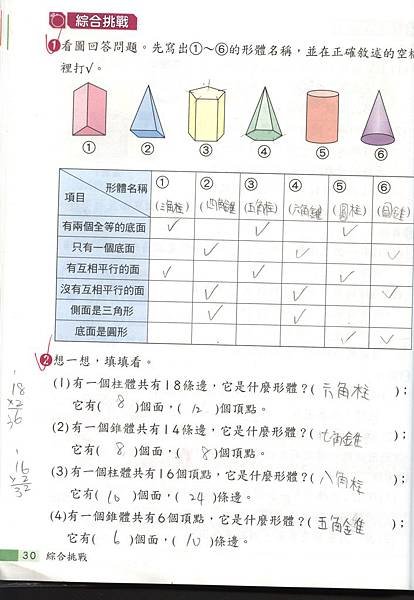 綜合挑戰
1 看圖回答問題。先寫出①～⑥的形體名稱，並在正確敘述的空格
裡打✓。
① ② ③ ④ ⑤ ⑥
形體名稱 ① ② ③ ④ ⑤ ⑥
項目 (三角柱) (四角錐) (五角柱) (六角錐) (圓柱) (圓錐)
有兩個全等的底面 ✓ ✓ ✓
只有一個底面 ✓ ✓ ✓
有互相平行的面 ✓ ✓ ✓
沒有互相平行的面 ✓ ✓ ✓
側面是三角形 ✓ ✓
底面是圓形 ✓ ✓
2 想一想，填填看。
(1)有一個柱體共有18條邊，它是什麼形體？( 六角柱 )；
它有( 8 )個面，( 12 )個頂點。
(2)有一個錐體共有14條邊，它是什麼形體？( 七角錐 )；
它有( 8 )個面，( 8 )個頂點。
(3)有一個柱體共有16個頂點，它是什麼形體？( 八角柱 )；
它有( 10 )個面，( 24 )條邊。
(4)有一個錐體共有6個頂點，它是什麼形體？( 五角錐 )；
它有( 6 )個面，( 10 )條邊。
1
18
×2
36
1
16
×2
32
30 綜合挑戰